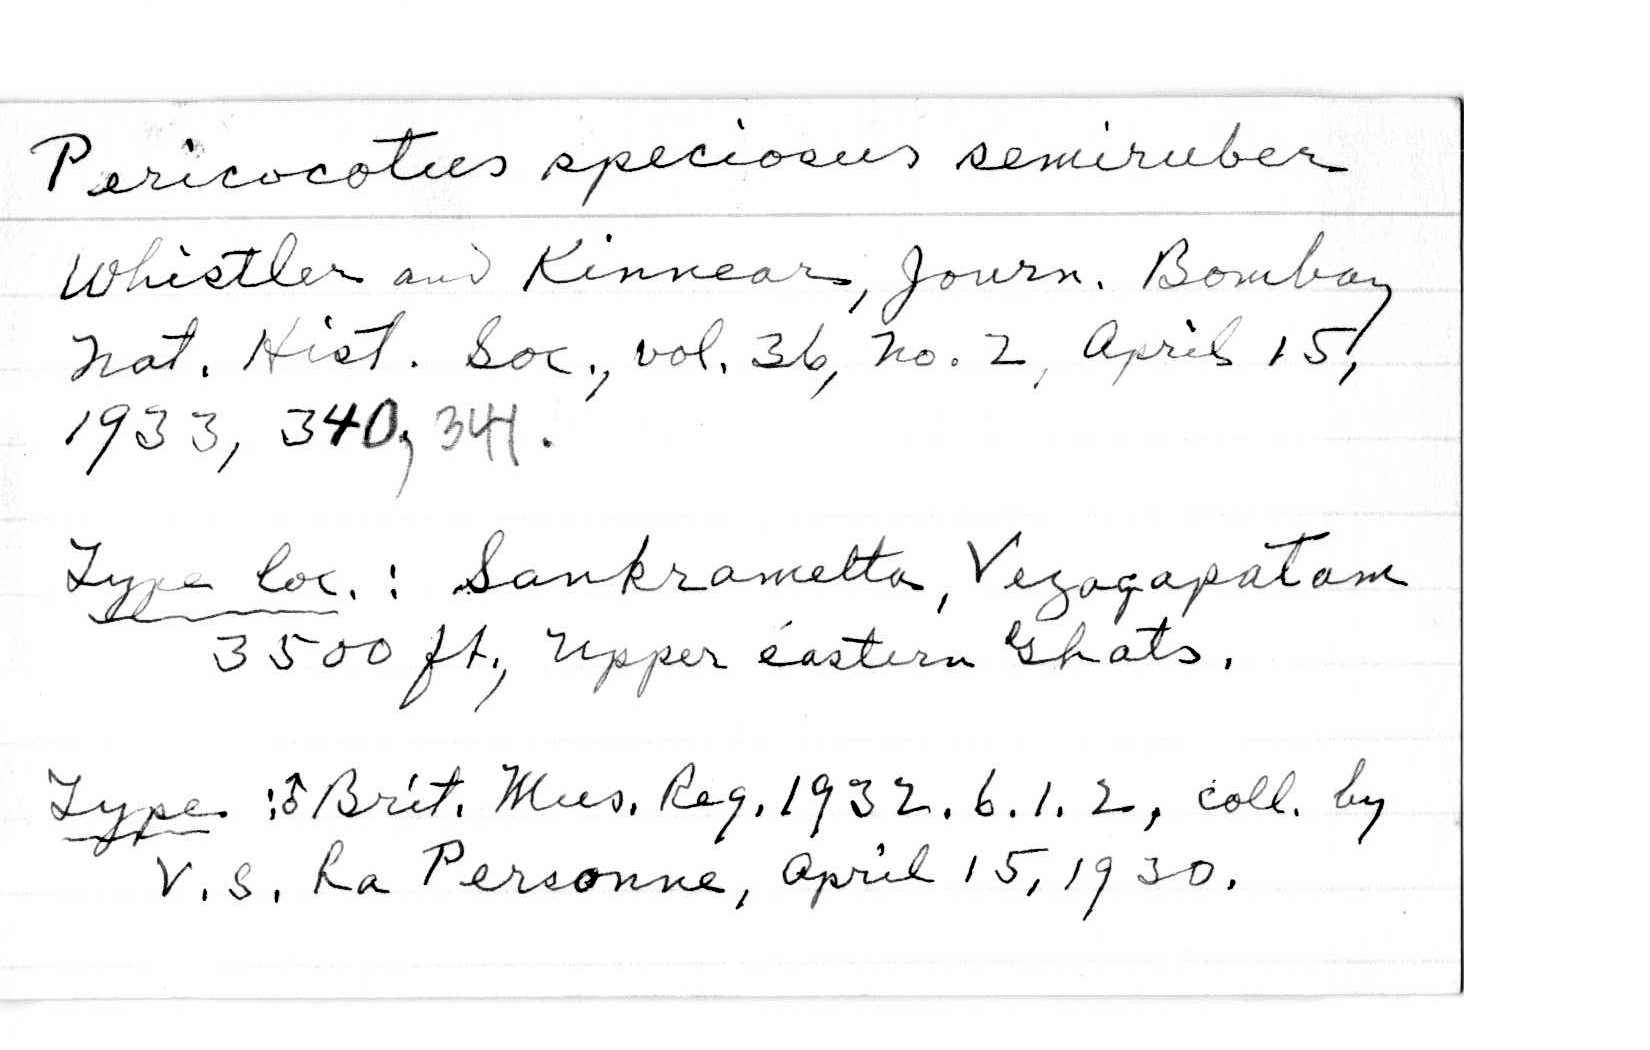 Pericocotus speciosus semiruber
Whistler and Kinnear, Journ. Bombay
Nat. Hist. Soc., vol. 36, no. 2, April 15,
1933, 340, 341.
Type loc. : Sankrametta, Vezagapatam
3500 ft., Upper eastern Ghats.
Type :♂ Brit. Mus. Reg. 1932.6.1.2, coll. by
V. S. La Personne, April 15, 1930.